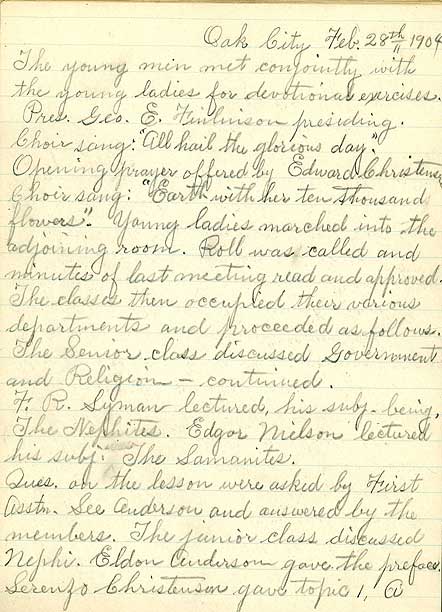 Oak City Feb. 28th 1904
The young men met conjointly with
the young ladies for devotional exercises.
Pres. Geo. E. Finlinson presiding.
Choir sang: "All hail the glorious day".
Opening prayer offered by Edward Christensen
Choir sang: "Earth with her ten thousand
flowers". Young ladies marched into the
adjoining room. Roll was called and
minutes of last meeting read and approved.
The classes then occupied their various
departments and proceeded as follows.
The Senior class discussed Government
and Religion – continued.
F. R. Lyman lectured, his subj. being,
The Nephites. Edgar Nielson lectured
his subj: The Lamanites.
Ques. on the lesson were asked by First
Asstn. Lee Anderson and answered by the
members. The junior class discussed
Nephi. Eldon Anderson gave the preface.
Lorenzo Christensen gave topic 1, a